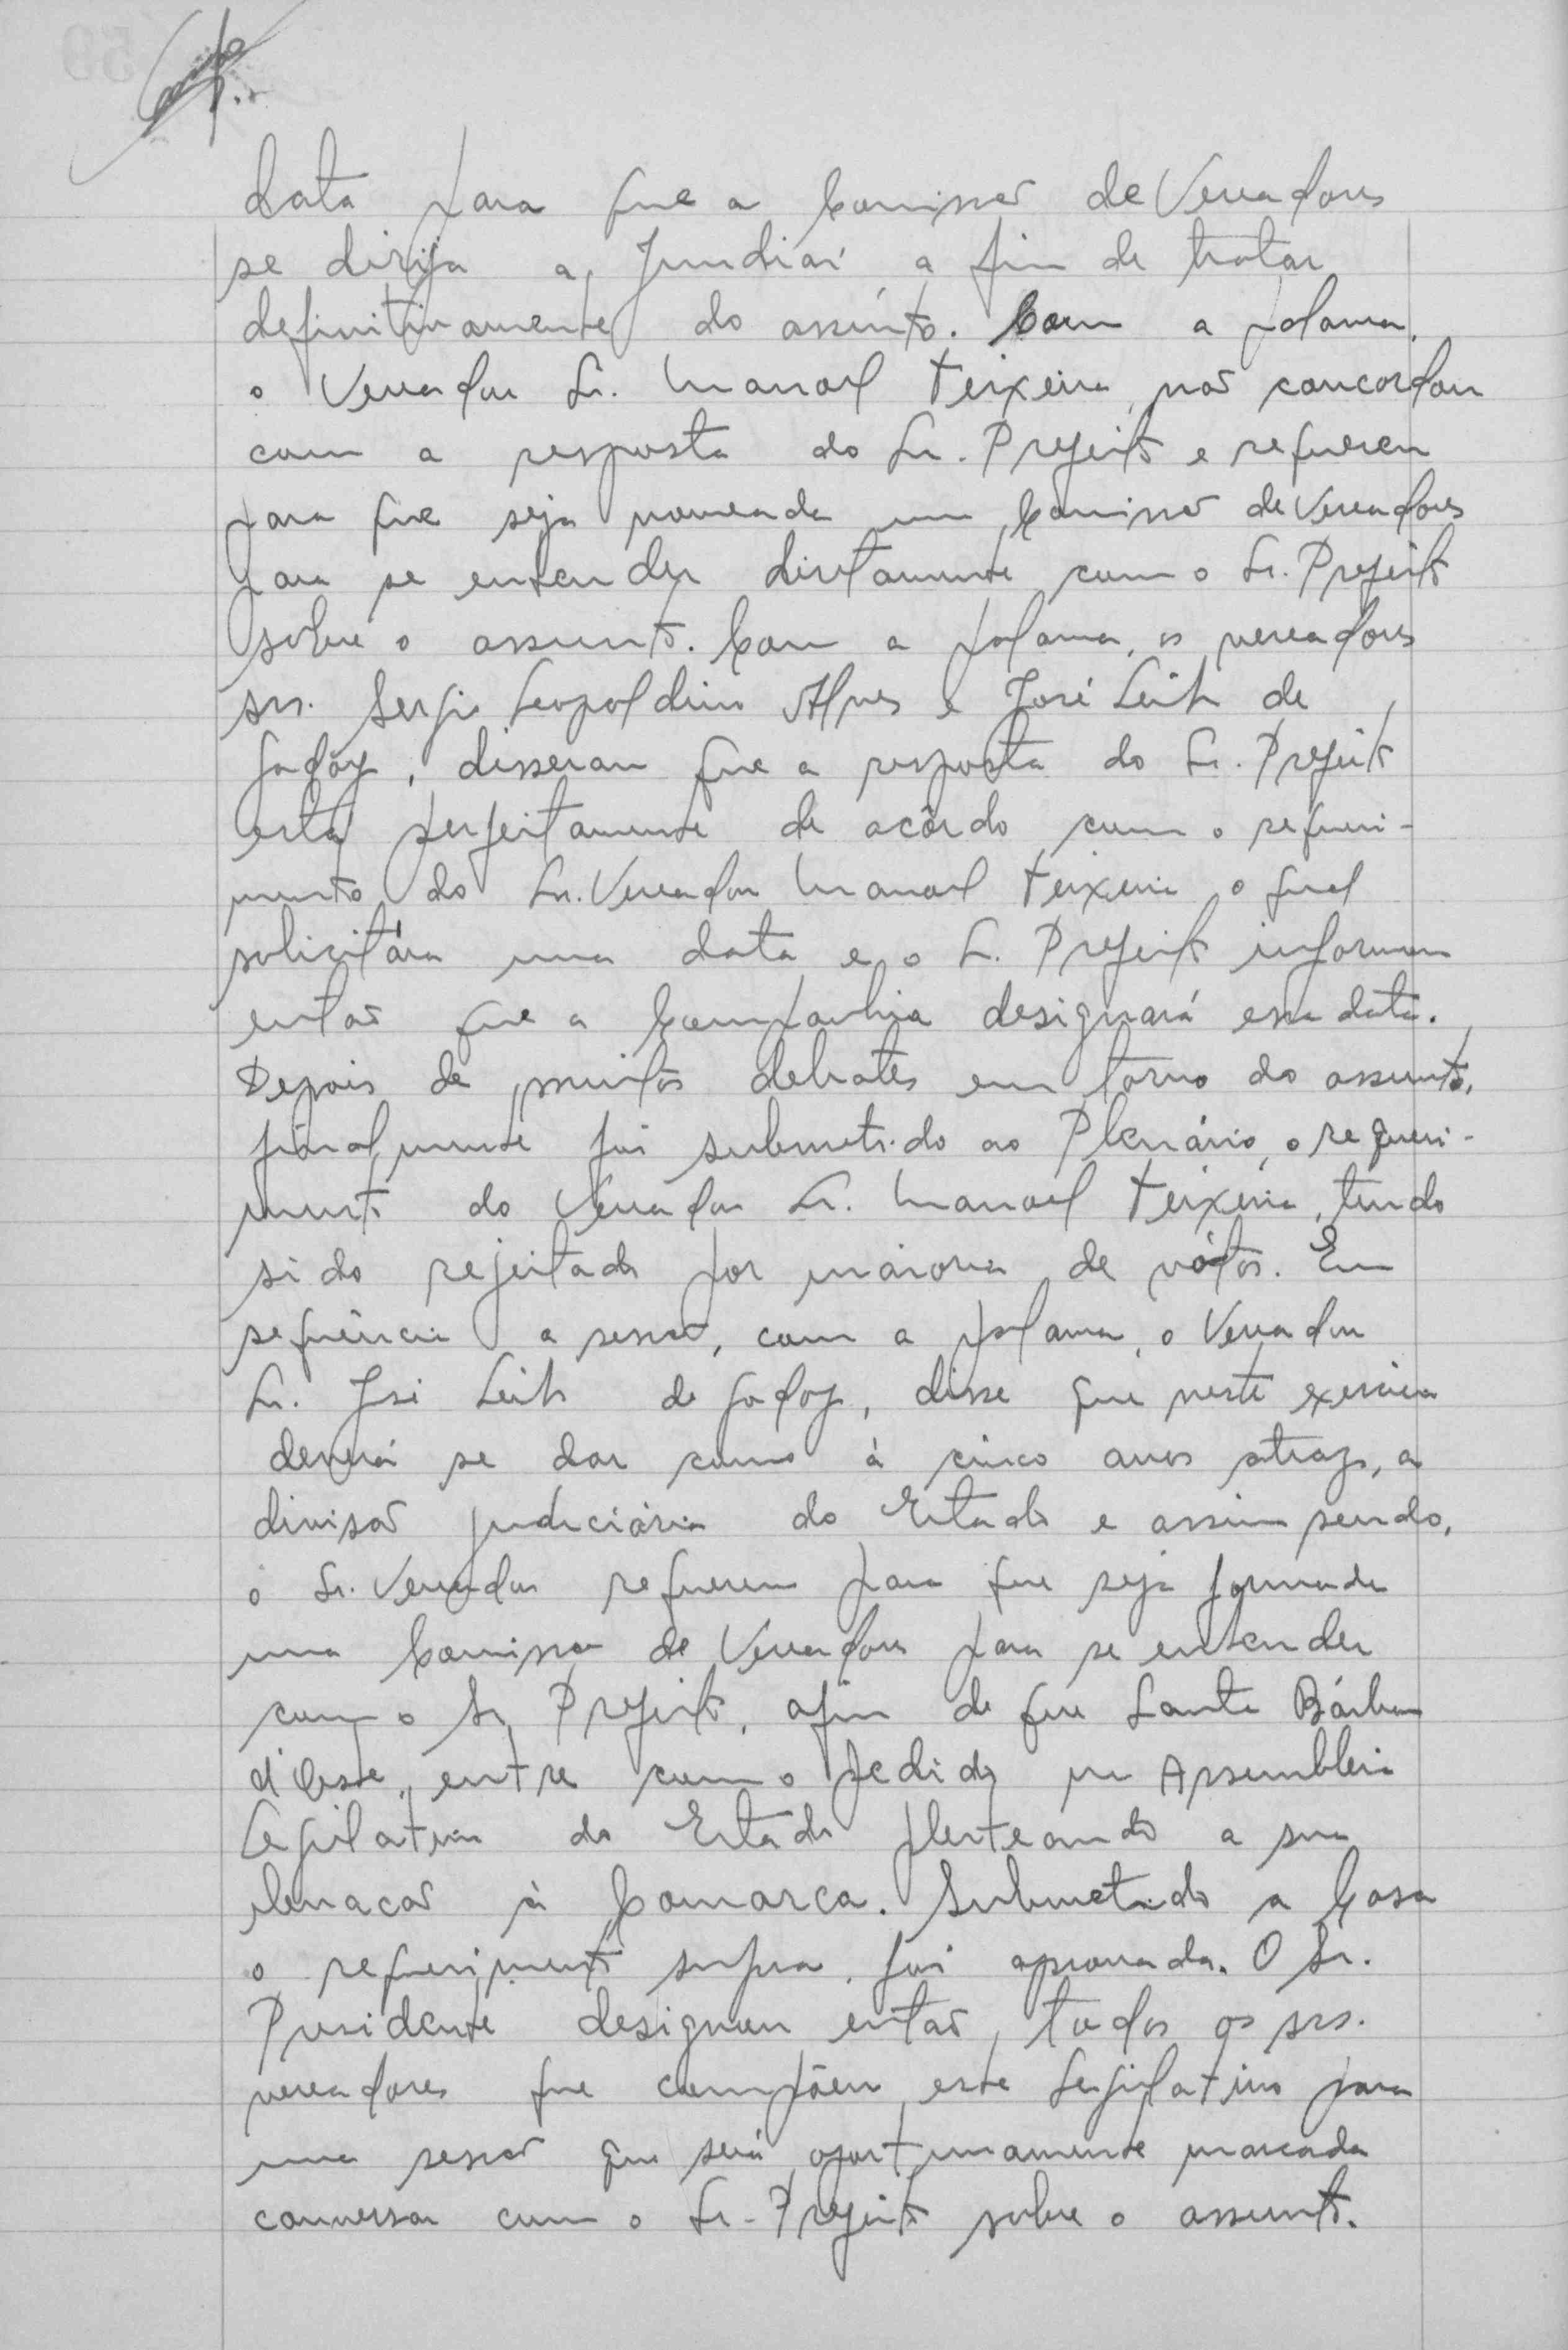 data para que a Comissão de Vereadores
se dirija a Jundiaí a fim de tratar
definitivamente do assúnto. Com a palavra,
o Vereador Sr. Manoel Teixeira, não concordou
com a resposta do Sr. Prefeito e requereu
para que seja nomeada um Comissão de Vereadores
para se entender diretamente com o Sr. Prefeito
sobre o assunto. Com a palavra, os vereadores
srs. Sergio Leopoldino Alves e José Leite de
Godoy, disseram que a resposta do Sr. Prefeito
está perfeitamente de acôrdo com o requeri-
mento do Sr. Vereador Manoel Teixeira o qual
solicitára uma data e o Sr. Prefeito informou
então que a Companhia designará essa data.
Depois de muitos debates em torno do assunto,
finalmente foi submetido ao Plenário, o requeri-
mento do Vereador Sr. Manoel Teixeira, tendo
sido rejeitado por maioria de vótos. Em
sequência a sessão, com a palavra, o Vereador
Sr. José Leite de Godoy, disse que neste exercicio
deverá se dar como á cinco anos atraz, a
divisão judiciária do Estado e assim sendo,
o Sr. Vereador requereu para que seja formada
uma Comissão de Vereadores para se entender
com o Sr. Prefeito, afim de que Santa Bárbara
d'Oeste, entre com o pedido na Assembleia
Legislativa do Estado pleiteando a sua
elevação á Comarca. Submetido a Casa
o requerimento supra, foi aprovada. O Sr.
Presidente designou então, todos os srs.
vereadores que compõem este Legislativo para
uma sessão que será oportunamente marcada
conversar com o Sr. Prefeito sobre o assunto.